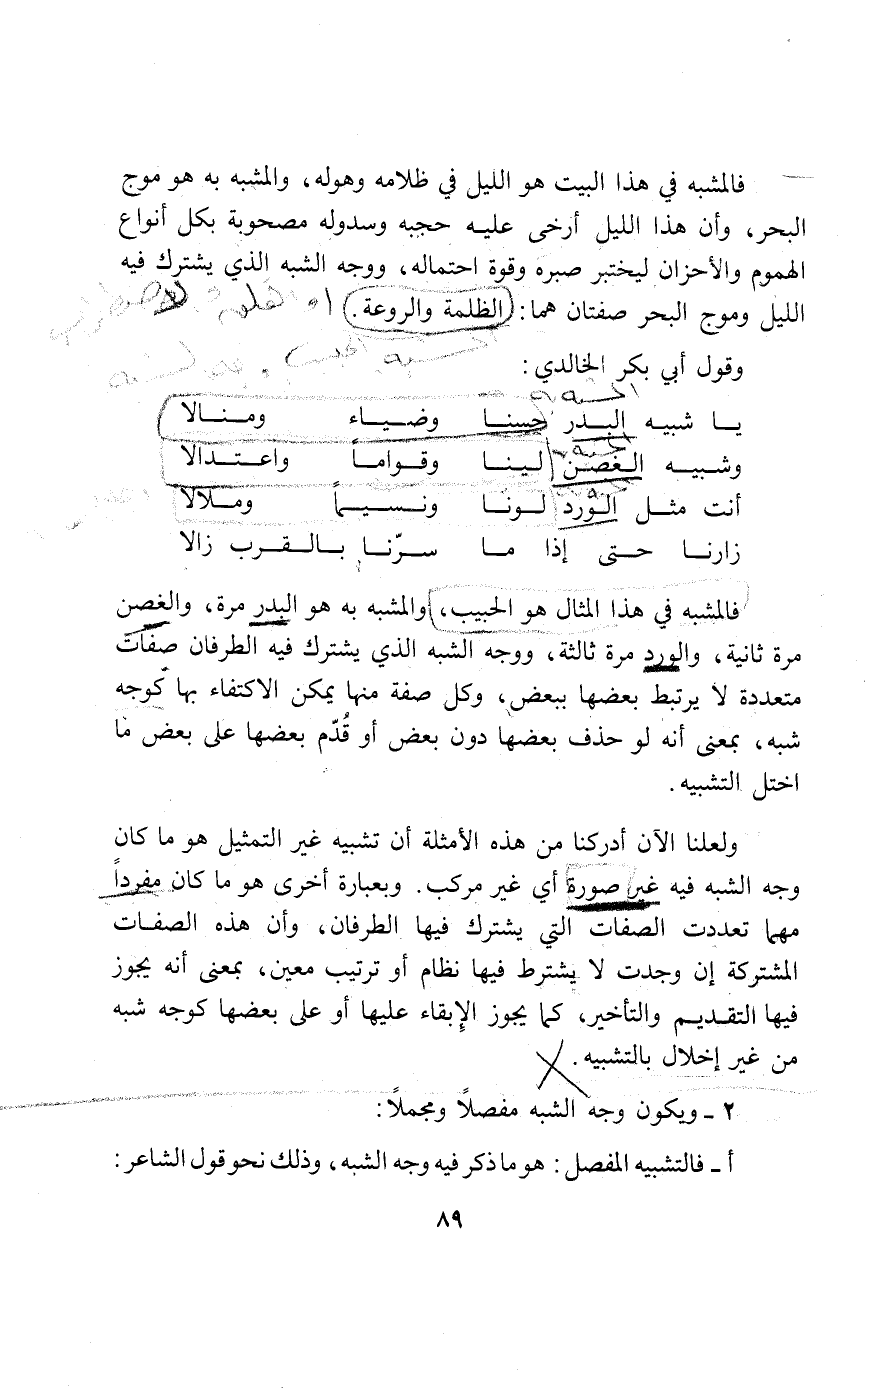 فالمشبه في هذا البيت هو الليل في ظلامه وهوله، والمشبه به هو موج
البحر، وأن هذا الليل أرخى عليه حجبه وسدوله مصحوبة بكل أنواع
الهموم والأحزان ليختبر صبره وقوة احتماله، ووجه الشبه الذي يشترك فيه
الليل وموج البحر صفتان هما: (الظلمة والروعة.)
وقول أبي بكر الخالدي:
يا شبيه البدر حسنا وضياء ومنالا
وشبيه الغصن لينا وقواماً واعتدالا
أنت مثل الورد لونا ونسيماً وملالا
زارنا حتى إذا ما سرّنا بالقرب زالا
فالمشبه في هذا المثال هو الحبيب، والمشبه به هو البدر مرة، والغصن
مرة ثانية، والورد مرة ثالثة، ووجه الشبه الذي يشترك فيه الطرفان صفات
متعددة لا يرتبط بعضها ببعض، وكل صفة منها يمكن الاكتفاء بها كوجه
شبه، بمعنى أنه لو حذف بعضها دون بعض أو قُدّم بعضها على بعض ما
اختل التشبيه.
ولعلنا الآن أدركنا من هذه الأمثلة أن تشبيه غير التمثيل هو ما كان
وجه الشبه فيه غير صورة أي غير مركب. وبعبارة أخرى هو ما كان مفرداً
مهما تعددت الصفات التي يشترك فيها الطرفان، وأن هذه الصفات
المشتركة إن وجدت لا يشترط فيها نظام أو ترتيب معين، بمعنى أنه يجوز
فيها التقديم والتأخير، كما يجوز الإبقاء عليها أو على بعضها كوجه شبه
من غير إخلال بالتشبيه.
٢ ـ ويكون وجه الشبه مفصلاً ومجملاً:
أ ـ فالتشبيه المفصل: هو ما ذكر فيه وجه الشبه، وذلك نحو قول الشاعر:
٨٩